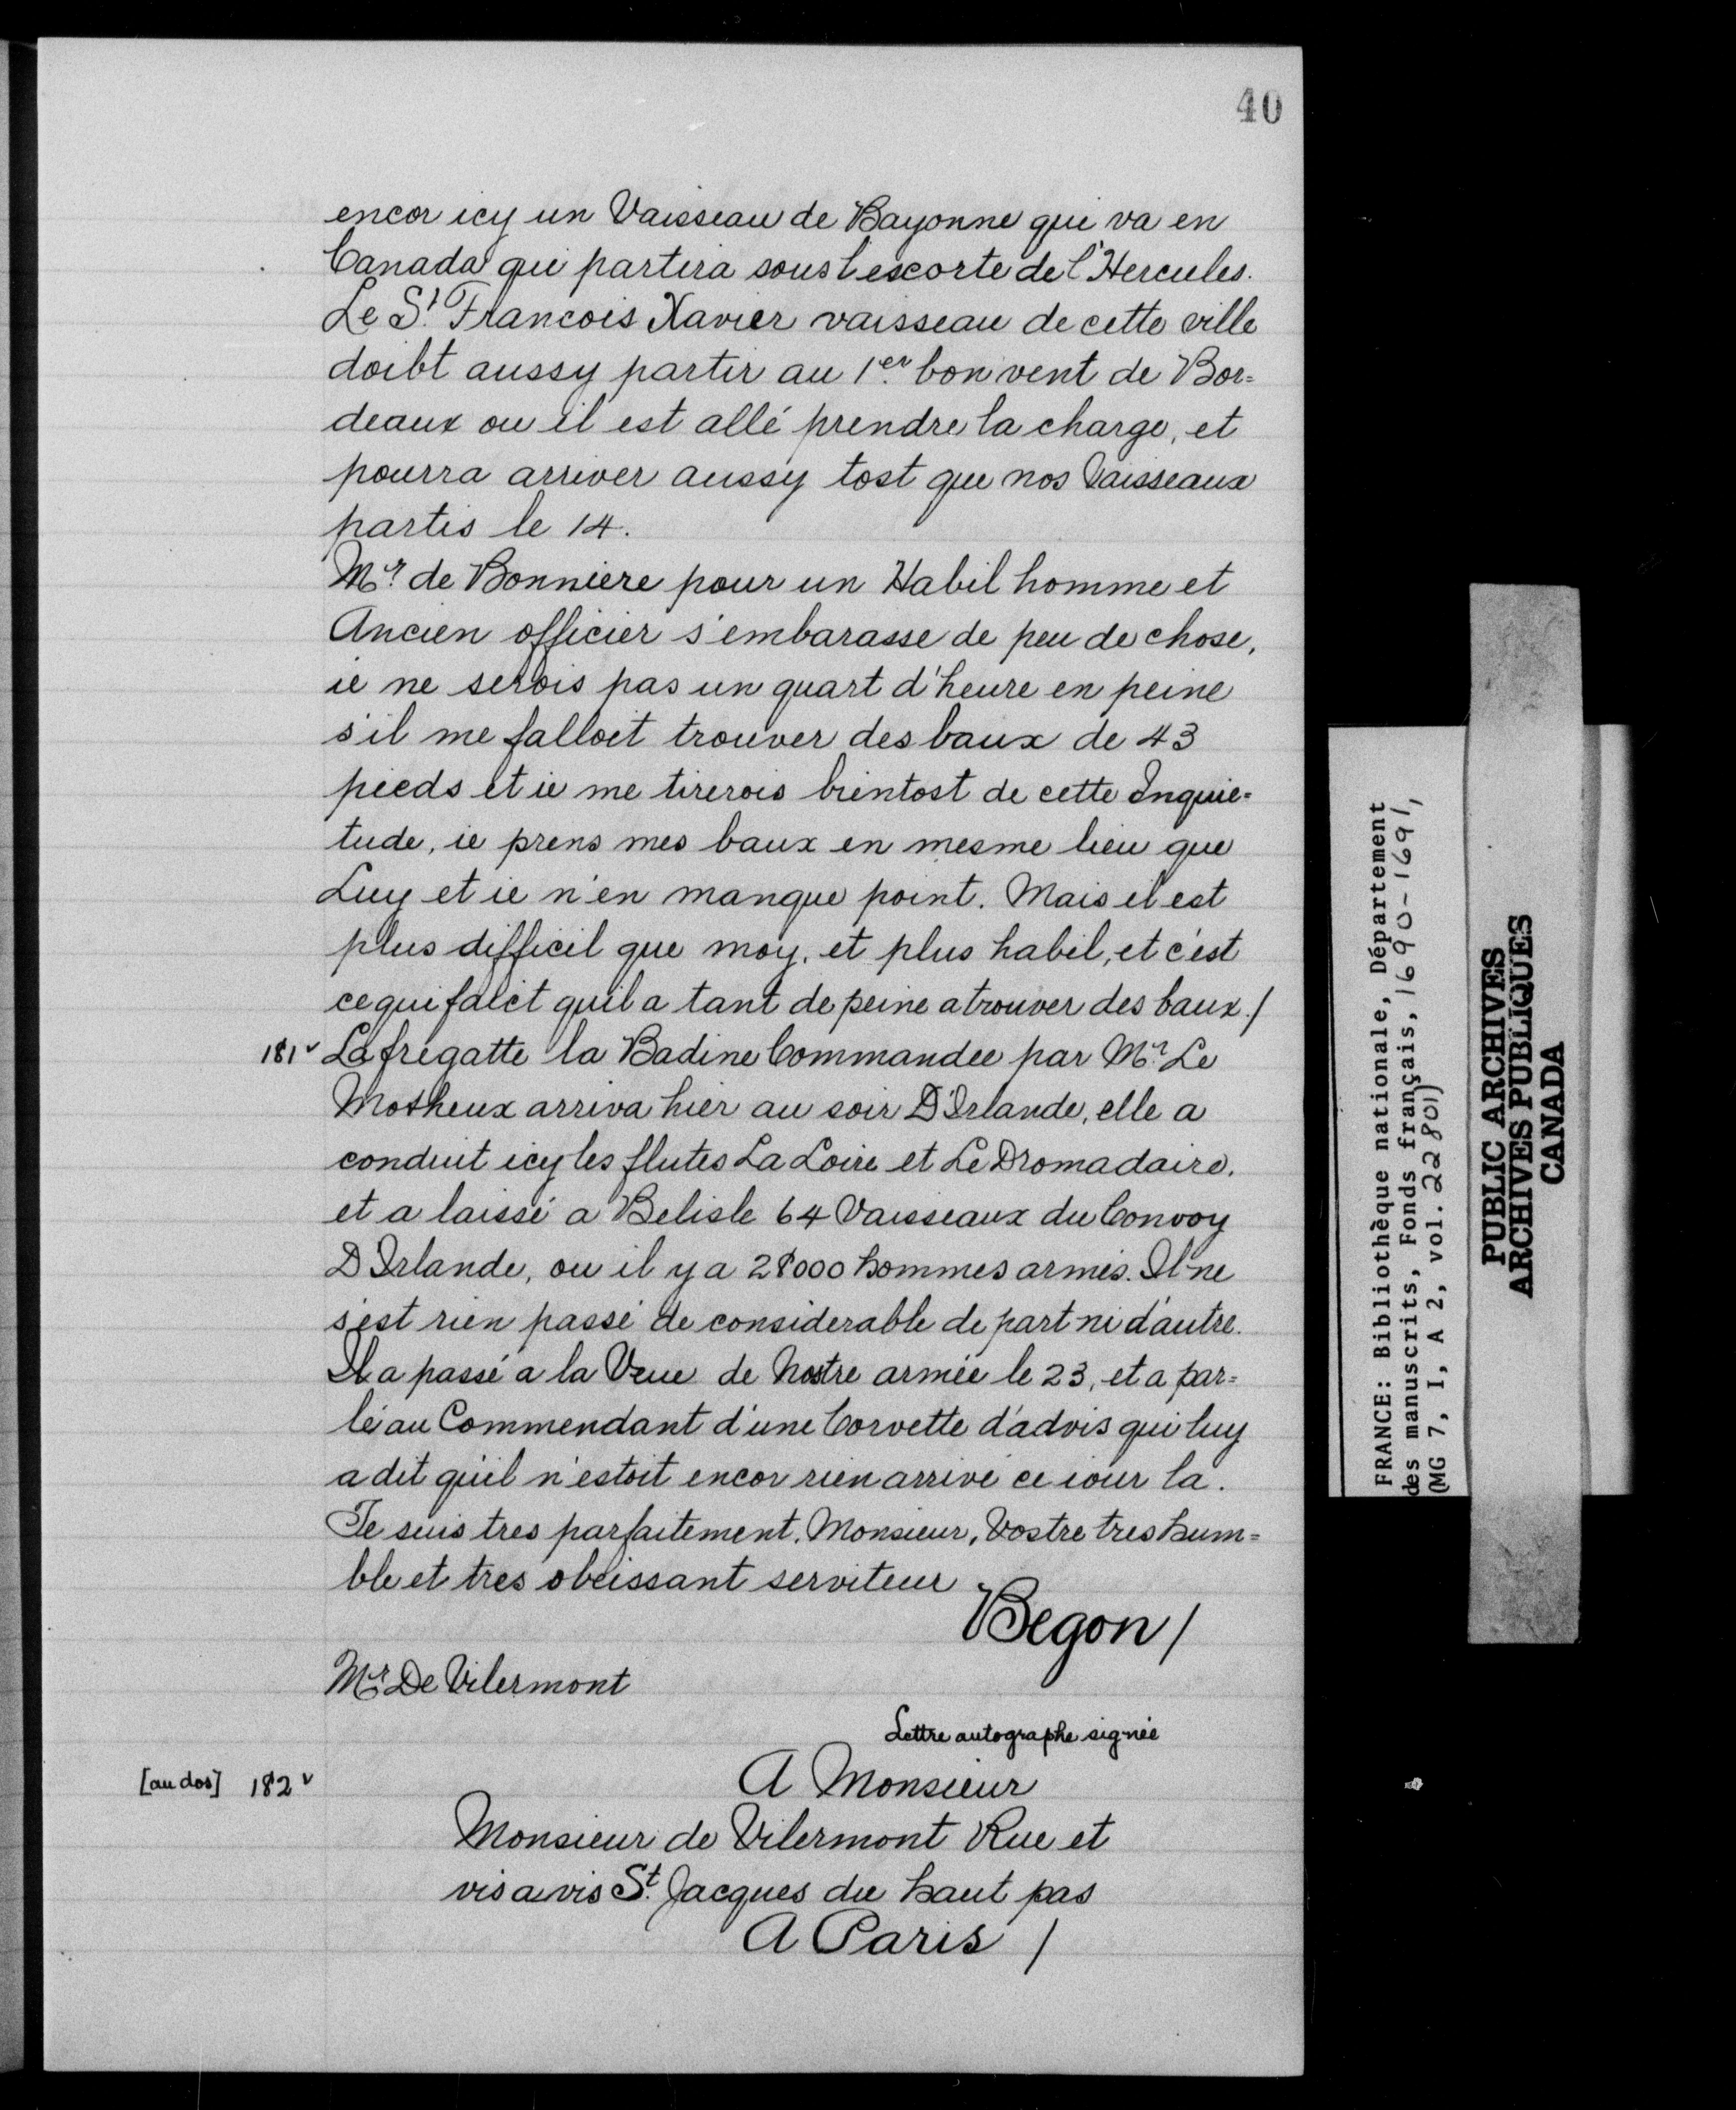 40
encor icy un Vaisseau de Bayonne qui va en
Canada qui partira sous l'escorte de l'Hercules.
Le St. Francois Xavier vaisseau de cette ville
doibt aussy partir au 1er. bon vent de Bor=
deaux ou il est allé prendre la charge, et
pourra arriver aussy tost que nos Vaisseaux
partis le 14.
Mr. de Bonniere pour un Habil homme et
Ancien officier s'embarasse de peu de chose,
ie ne serois pas un quart d'heure en peine
s'il me falloit trouver des baux de 43
pieds et ie me tirerois bientost de cette Inquie=
tude, ie prens mes baux en mesme lieu que
Luy et ie n'en manque point. Mais il est
plus difficil que moy, et plus habil, et c'est
ce qui faict quil a tant de peine a trouver des baux./
181v La fregatte la Badine Commandee par Mr. Le
Motheux arriva hier au soir D'Irlande, elle a
conduit icy les flutes La Loire et Le Dromadaire,
et a laissé a Belisle 64 Vaisseaux du Convoy
D'Irlande, ou il y a 28000 hommes armés. Il ne
s'est rien passé de considerable de part ni d'autre.
Il a passé a la Veue de Nostre armée le 23, et a par=
lé au Commendant d'une Corvette d'advis qui luy
a dit qu'il n'estoit encor rien arrivé ce iour la.
Je suis tres parfaitement, Monsieur, Vostre tres hum=
ble et tres obeissant serviteur
Begon /
Mr. De Vilermont
Lettre autographe signée
[au dos] 182v A Monsieur
Monsieur de Vilermont Rue et
vis a vis St. Jacques du haut pas
A Paris /
FRANCE: Bibliothèque nationale, Département
des manuscrits, Fonds français, 1690-1691,
(MG 7, I, A 2, vol. 22801)
PUBLIC ARCHIVES
ARCHIVES PUBLIQUES
CANADA